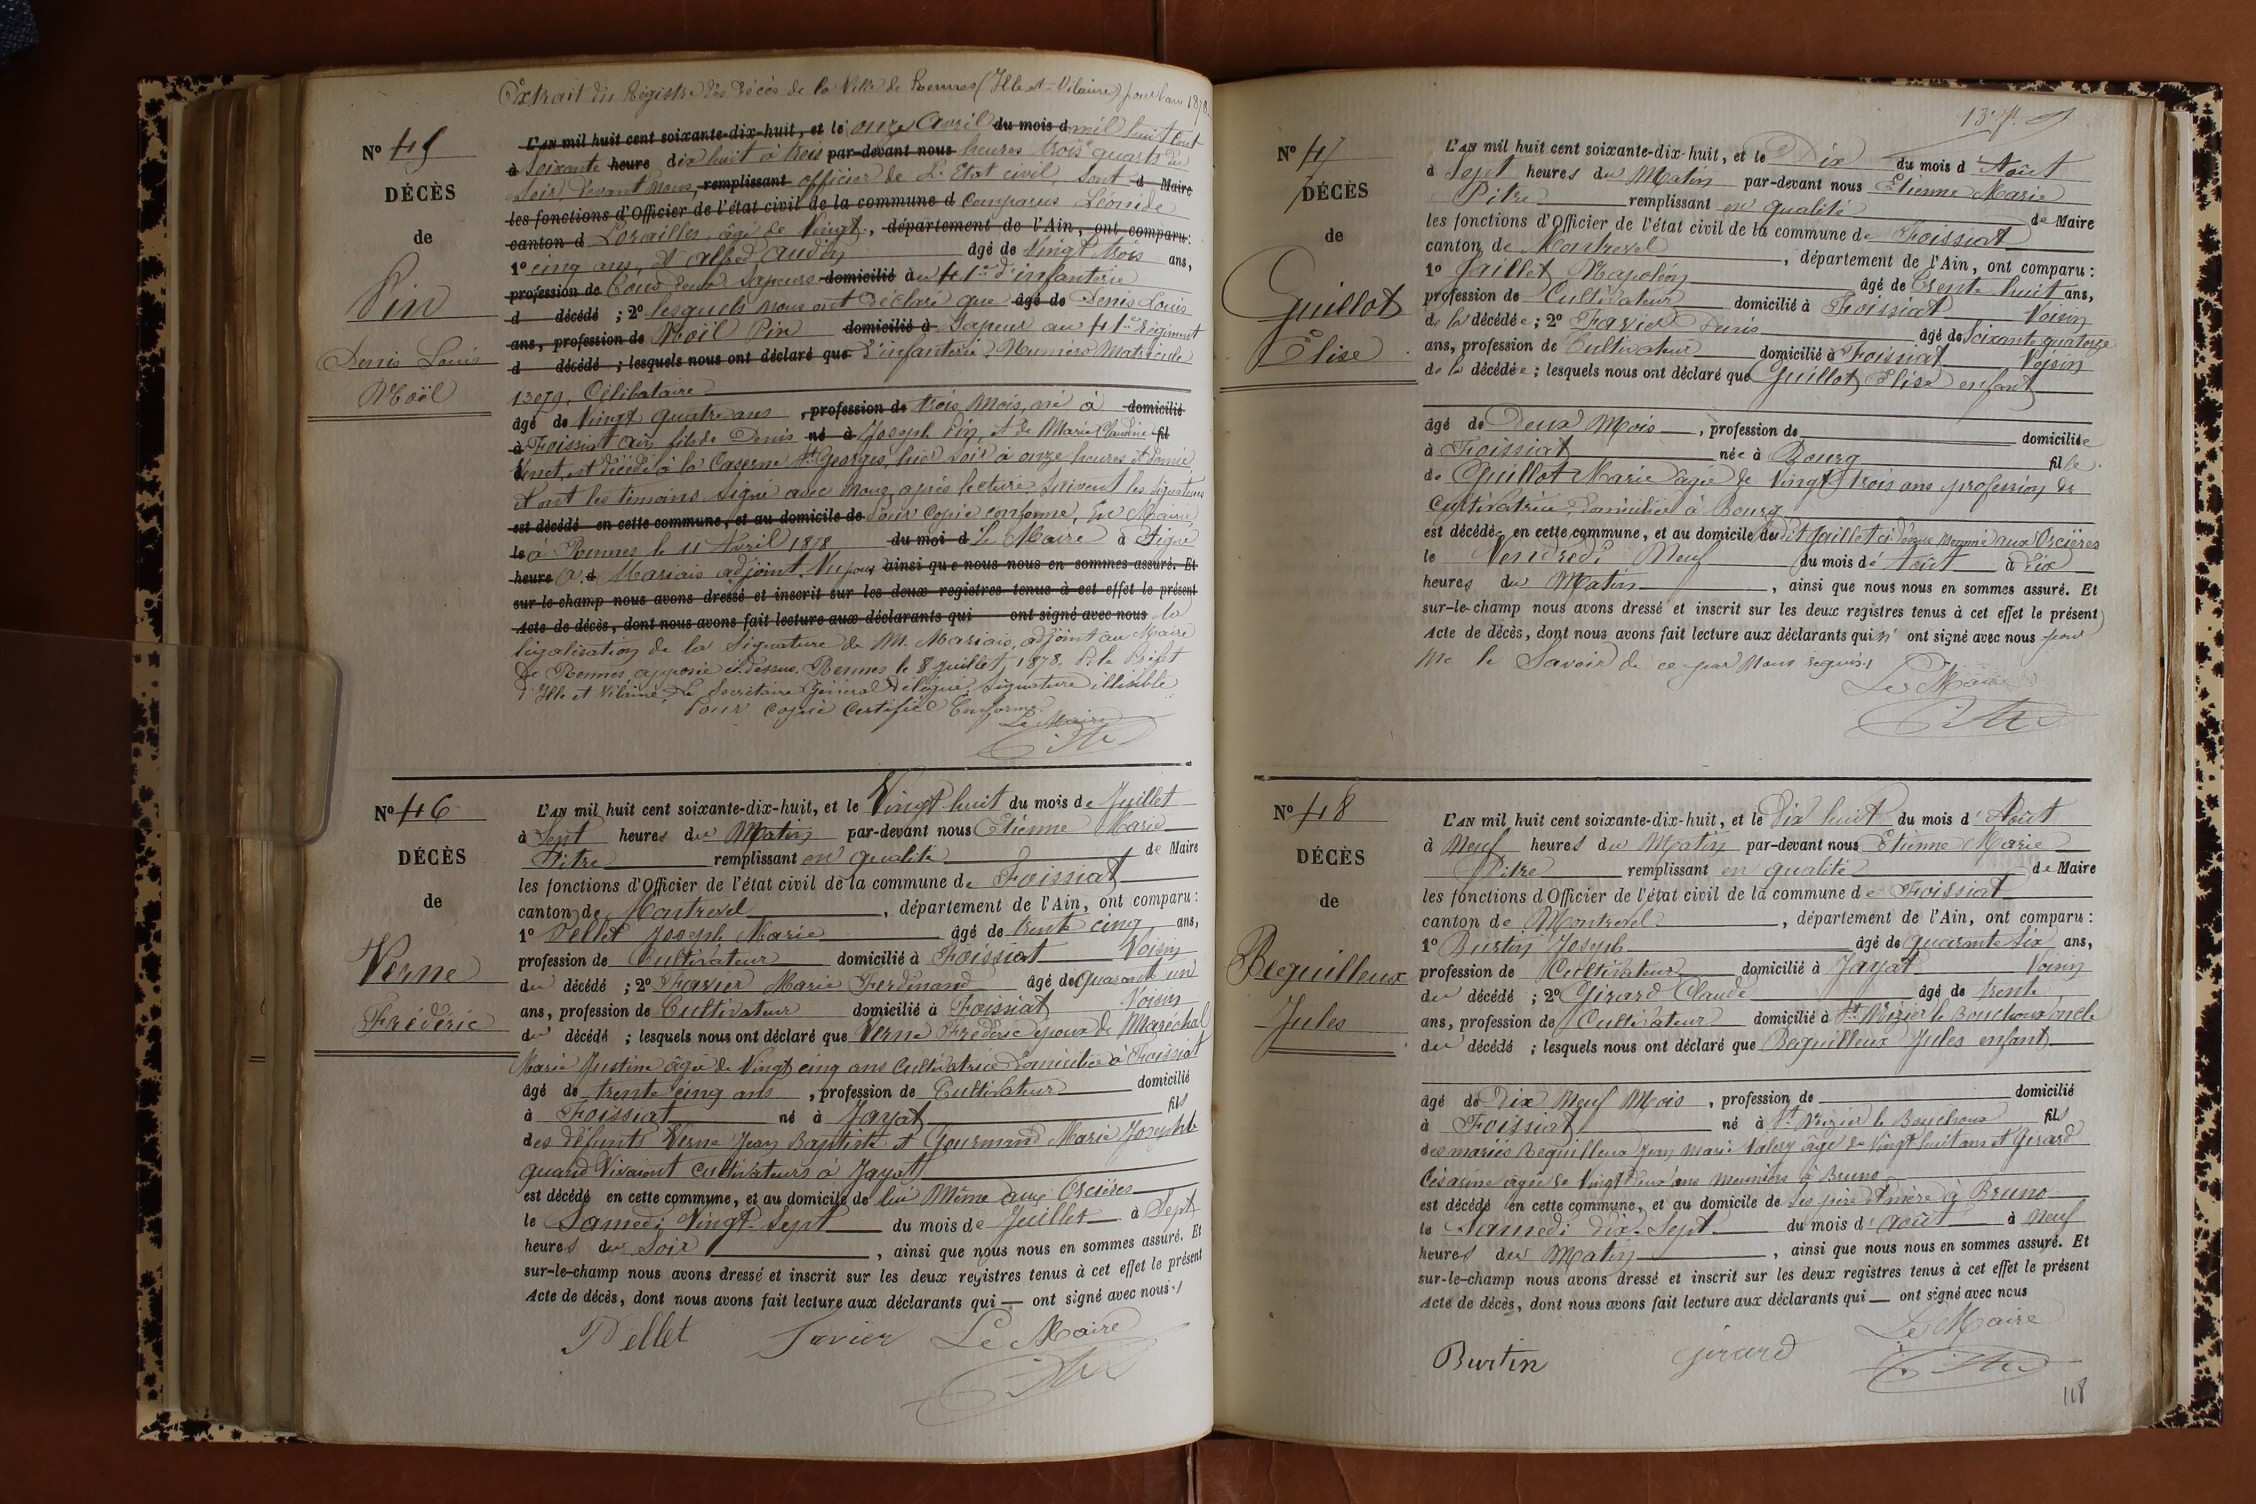 Extrait du Régistre des Décès de la Ville de Rennes (Ille et Vilaine) pour l'an 1878.
N° 45
DÉCÈS
de
Pin
Denis Louis
Noël
L'AN mil huit cent soixante-dix-huit, et le onze Avril du mois d mil huit cent
à soixante heure dix huit à trois par-devant nous heures trois quarts du
soir, devant nous, remplissant officier de L'Etat civil, sont d Maire
les fonctions d'Officier de l'état civil de la commune d comparus Léonide
canton d Lorailler, âgé de Vingt, département de l'Ain, ont comparu:
1° cinq ans, et alfred Audin âgé de Vingt trois ans,
profession de tous deux sapeurs domicilié au 41me d'infanterie
d décédé ; 2° lesquels nous ont déclaré que âgé de Denis Louis
ans, profession de Noël Pin domicilié à Sapeur au 41me Régiment
d décédé ; lesquels nous ont déclaré que d'infanterie, Numéro Matricule
13079, Célibataire
âgé de Vingt quatre ans, profession de trois Mois, né à domicilié
à Foissiat Ain fils de Denis né à Joseph Pin, et de Marie Claudine fil
Venet, est décédé à la Caserne St Georges, hier soir à onze heures et demie
et ont les témoins signé avec nous, après lecture suivent les signatures
est décédé en cette commune, et au domicile de Pour Copie conforme, En Mairie,
le à Rennes le 11 Avril 1878 du moi d Le Maire à Signé
heure A. d Mariais adjoint. Vu pour ainsi que nous nous en sommes assuré. Et
sur-le-champ nous avons dressé et inscrit sur les deux registres tenus à cet effet le présent
Acte de décès, dont nous avons fait lecture aux déclarants qui ont signé avec nous la
légalisation de la Signature de M. Mariais, adjoint au Maire
de Rennes apposée ci-dessus. Rennes le 8 Juillet 1878. P. le Préfet
d'Ille et Vilaine, Le Secrétaire Général délégué, signature illisible
Pour copie certifiée Conforme
Le Maire
Pitre
N° 46
DÉCÈS
de
Verne
Frédéric
L'AN mil huit cent soixante-dix-huit, et le Vingt huit du mois de Juillet
à Sept heures du Matin par-devant nous Etienne Marie
Pitre remplissant en qualité de Maire
les fonctions d'Officier de l'état civil de la commune de Foissiat
canton de Montrevel, département de l'Ain, ont comparu:
1° Pellet Joseph Marie âgé de trente cinq ans,
profession de Cultivateur domicilié à Foissiat Voisin
du décédé ; 2° Favier Marie Ferdinand âgé de Quarante un
ans, profession de Cultivateur domicilié à Foissiat Voisin
du décédé ; lesquels nous ont déclaré que Verne Frédéric époux de Maréchal
Marie Justine âgée de Vingt cinq ans Cultivatrice Domiciliée à Foissiat
âgé de trente cinq ans, profession de Cultivateur domicilié
à Foissiat né à Jayat fils
des défunts Verne Jean Baptiste et Gourmand Marie Josephte
quand Vivaient cultivateurs à Jayat
est décédé en cette commune, et au domicile de lui Même aux Orcières
le Samedi Vingt-Sept du mois de Juillet à Sept
heures du Soir, ainsi que nous nous en sommes assuré. Et
sur-le-champ nous avons dressé et inscrit sur les deux registres tenus à cet effet le présent
Acte de décès, dont nous avons fait lecture aux déclarants qui — ont signé avec nous./
Pellet Favier Le Maire
Pitre
N° 47
DÉCÈS
de
Guillot
Élise
L'AN mil huit cent soixante-dix-huit, et le Dix du mois d'Août
à Sept heures du Matin par-devant nous Etienne Marie
Pitre remplissant en qualité de Maire
les fonctions d'Officier de l'état civil de la commune de Foissiat
canton de Montrevel, département de l'Ain, ont comparu:
1° Jaillet Napoléon âgé de trente huit ans,
profession de Cultivateur domicilié à Foissiat Voisin
de la décédée ; 2° Favier Denis âgé de Soixante quatorze
ans, profession de Cultivateur domicilié à Foissiat Voisin
de la décédée ; lesquels nous ont déclaré que Guillot Elise enfant
âgé de Deux Mois, profession de domiciliée
à Foissiat née à Bourg fille
de Guillot Marie âgée de Vingt trois ans profession de
Cultivatrice, Domiciliée à Bourg
est décédée en cette commune, et au domicile du dit Jaillet ci dessus Nommé aux Orcières
le Vendredi Neuf du mois d'Août à Dix
heures du Matin, ainsi que nous nous en sommes assuré. Et
sur-le-champ nous avons dressé et inscrit sur les deux registres tenus à cet effet le présent
Acte de décès, dont nous avons fait lecture aux déclarants qui n' ont signé avec nous pour
ne le Savoir de ce par Nous requis./
Le Maire
Pitre
N° 48
DÉCÈS
de
Beguilleux
Jules
L'AN mil huit cent soixante-dix-huit, et le Dix huit du mois d'Août
à Neuf heures du Matin par-devant nous Etienne Marie
Pitre remplissant en qualité de Maire
les fonctions d'Officier de l'état civil de la commune de Foissiat
canton de Montrevel, département de l'Ain, ont comparu:
1° Burtin Joseph âgé de quarante six ans,
profession de Cultivateur domicilié à Jayat Voisin
du décédé ; 2° Girard Claude âgé de trente
ans, profession de Cultivateur domicilié à St Nizier le Bouchoux oncle
du décédé ; lesquels nous ont déclaré que Beguilleux Jules enfant
âgé de Dix Neuf Mois, profession de domicilié
à Foissiat né à St Nizier le Bouchoux fils
des mariés Beguilleux Jean Marie Valery âgé de Vingt huit ans et Girard
Césarine âgée de Vingt Deux ans meuniers à Bruno
est décédé en cette commune, et au domicile de ses père et mère à Bruno
le Samedi dix-Sept du mois d'août à Neuf
heures du Matin, ainsi que nous nous en sommes assuré. Et
sur-le-champ nous avons dressé et inscrit sur les deux registres tenus à cet effet le présent
Acte de décès, dont nous avons fait lecture aux déclarants qui — ont signé avec nous
Le Maire
Burtin Girard Pitre
118